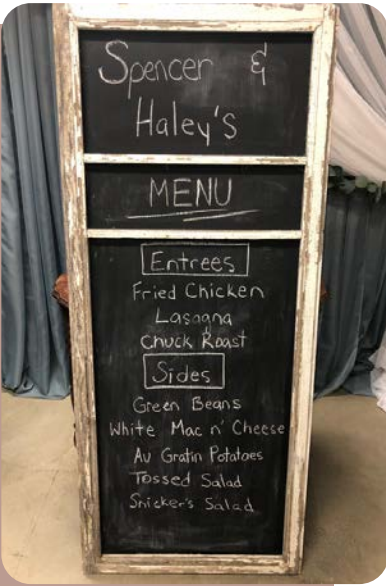 Spencer &
Haley's
MENU
Entrees
Fried Chicken
Lasagna
Chuck Roast
Sides
Green Beans
White Mac n' Cheese
Au Gratin Potatoes
Tossed Salad
Snicker's Salad